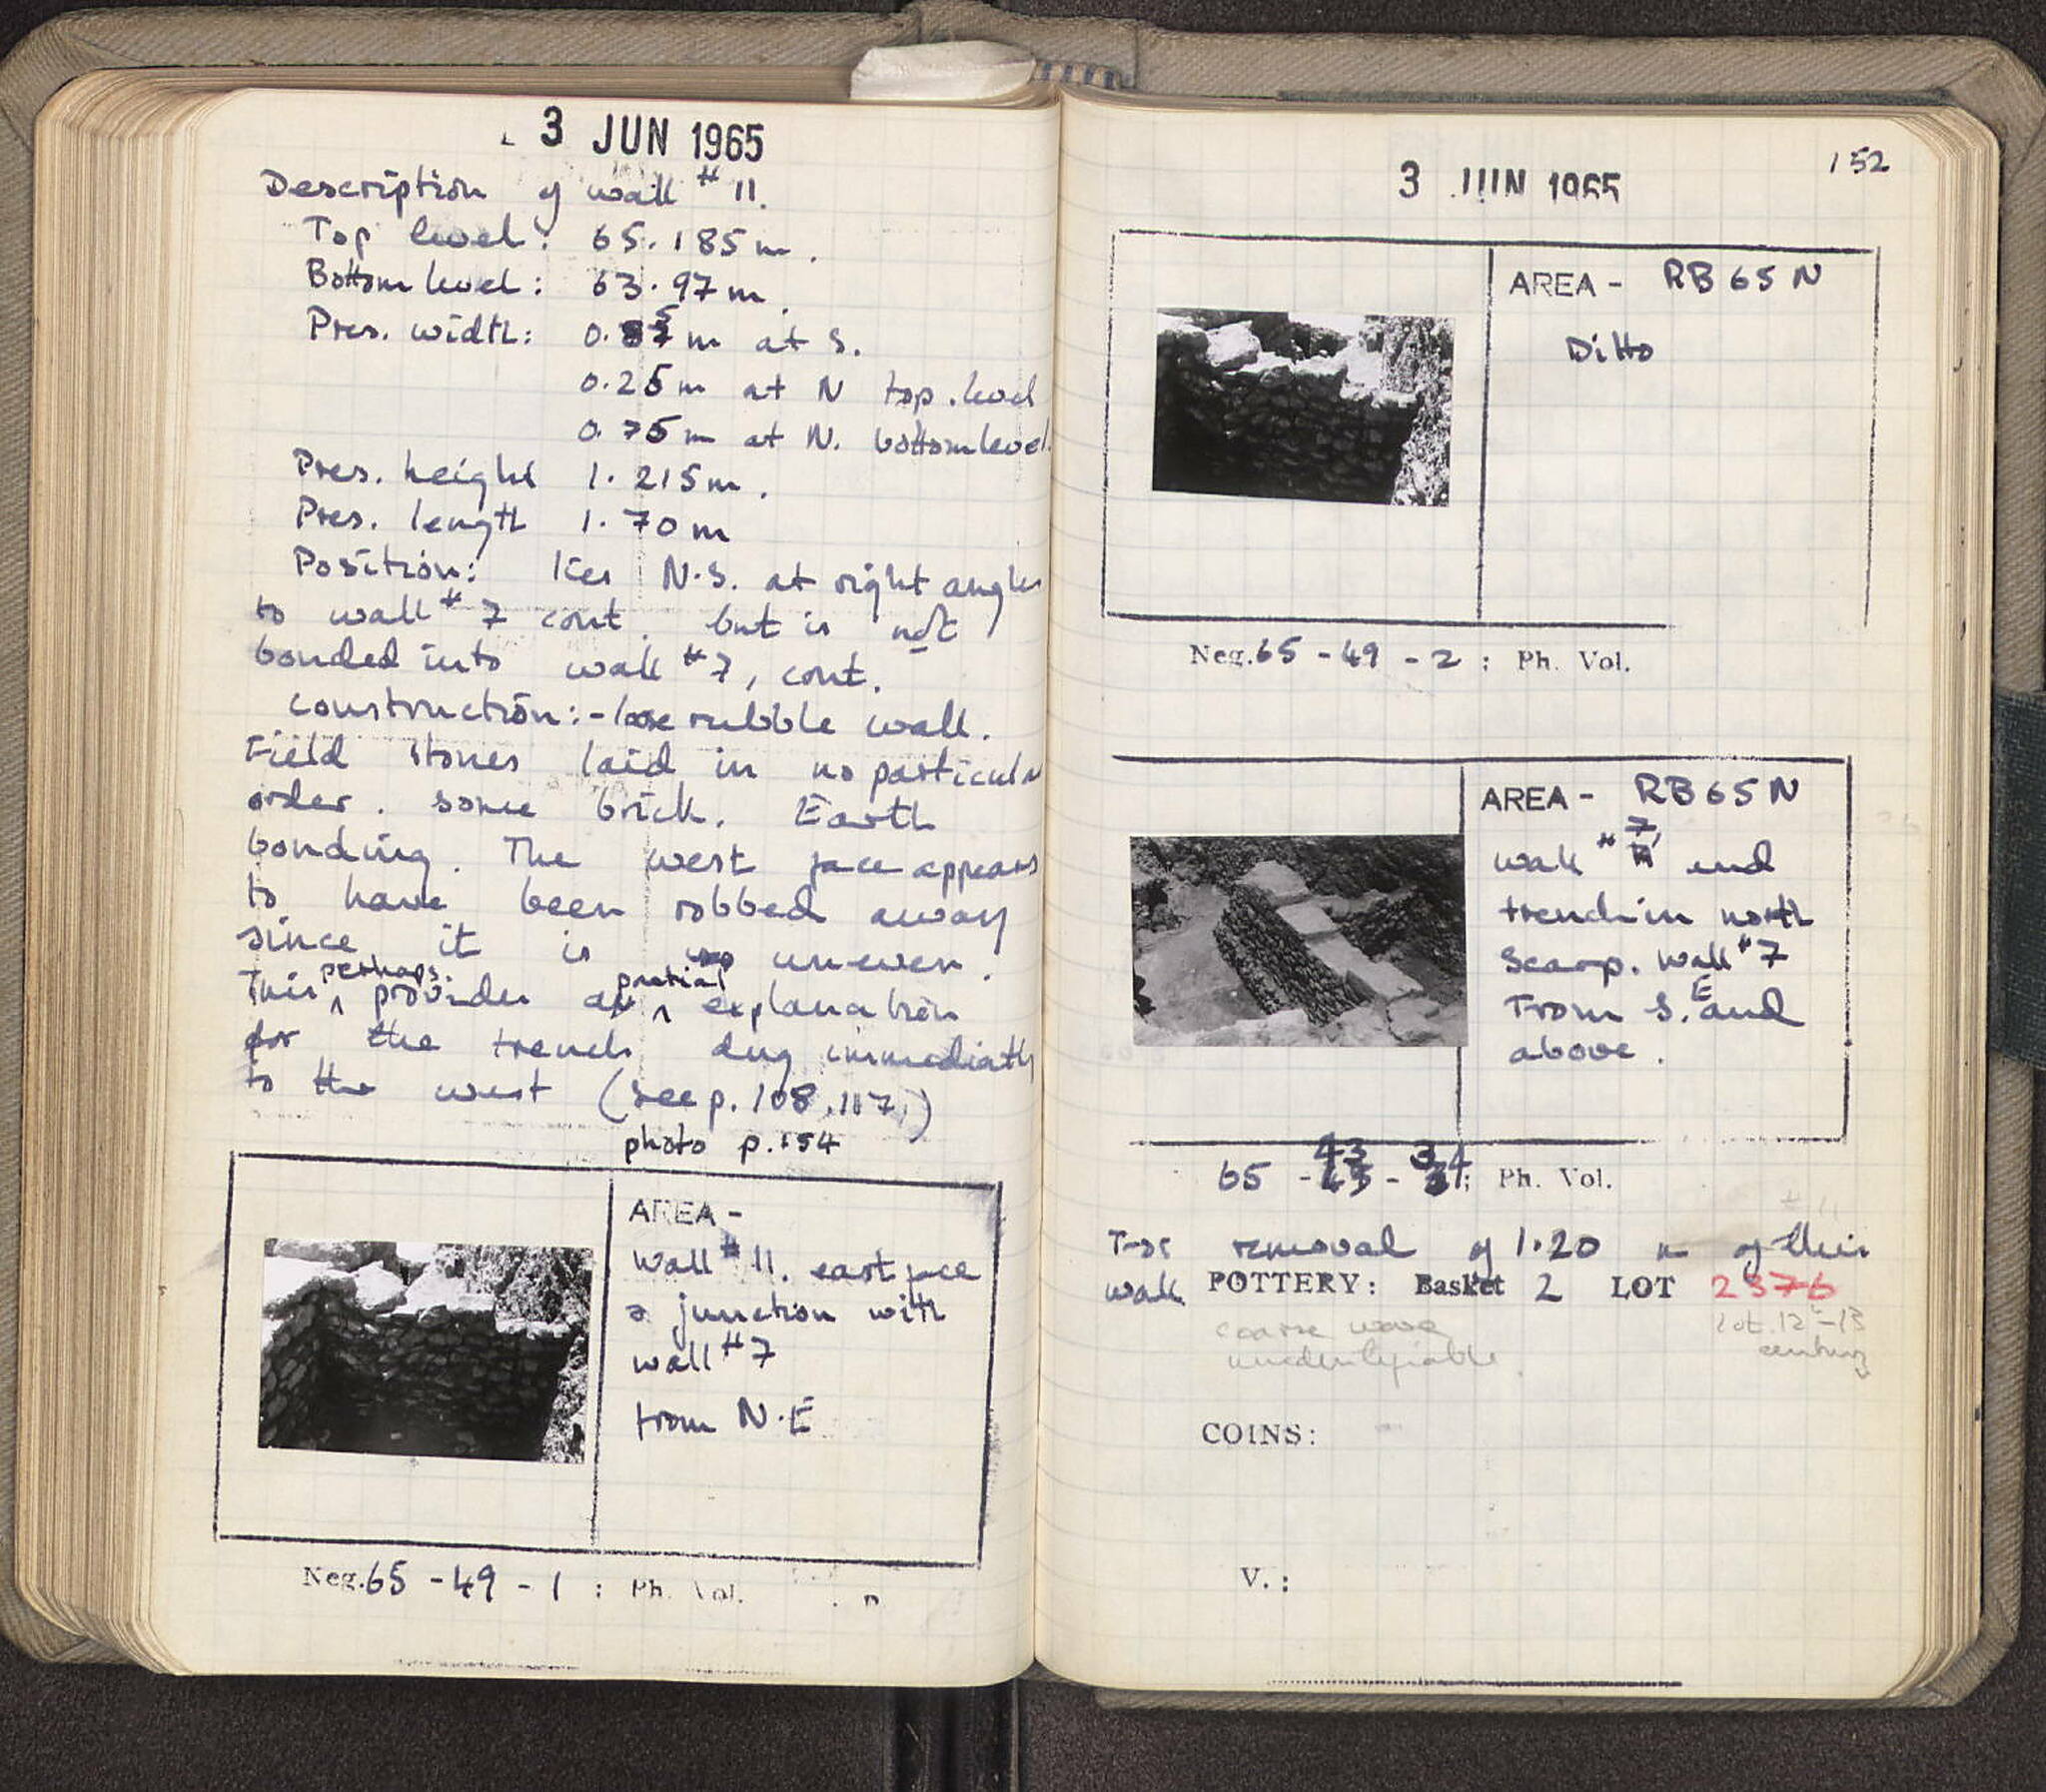 3 JUN 1965
Description of wall # 11.
Top level: 65.185 m.
Bottom level: 63.97 m.
Pres. width: 0. m at S.
0.25 m at N top. level
0.75 m at N. bottom level.
Pres. height 1.215 m.
Pres. length 1.70 m
Position: lies N.S. at right angles
to wall # 7 cont. but is not
bonded into wall # 7, cont.
construction:- loose rubble wall.
Field stones laid in no particular
order. some brick. Earth
bonding. The west face appears
to have been robbed away
since it is uneven.
This perhaps provides a partial explanation
for the trench dug immediately
to the west (see p. 108, 117,)
photo p. 154
AREA -
Wall # 11. east face
& junction with
wall # 7
from N.E
Neg. 65 - 49 - 1 : Ph. Vol.
152
3 JUN 1965
AREA - RB 65 N
Ditto
Neg. 65 - 49 - 2 : Ph. Vol.
AREA - RB 65 N
wall # 7, and
trench in north
scarp. wall # 7
From S.E and
above.
65 - 43 - 34 : Ph. Vol.
removal of 1.20 m of this
wall POTTERY: Basket 2 LOT 2376
coarse ware
unidentifiable.
lot. 12-13
century
# 11
COINS:
V. :